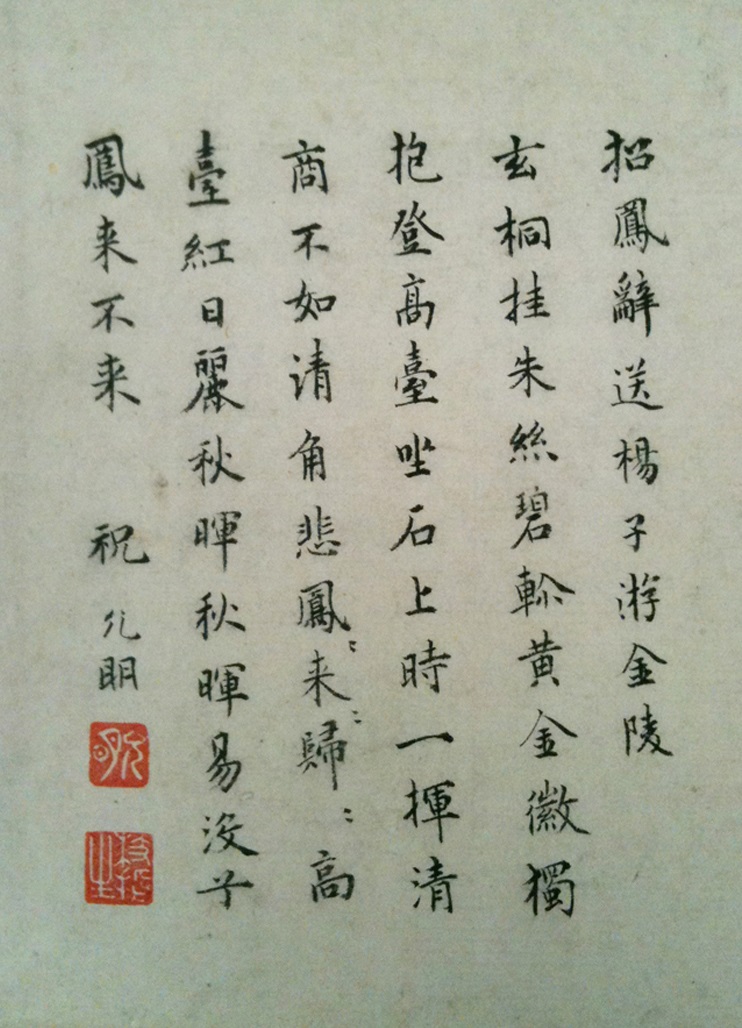 招鳳辭送楊子游金陵
玄桐挂朱絲碧軫黄金徽獨
抱登髙臺坐石上時一揮清
商不如清角悲鳳〻来〻歸〻髙
臺紅日麗秋暉秋暉易没子
鳳来不来 祝允明
允明
枝指生